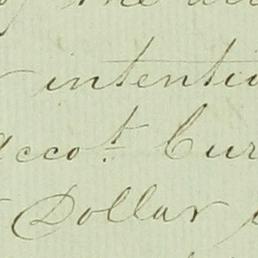 the
intenti
acco.t Cur
Dollar